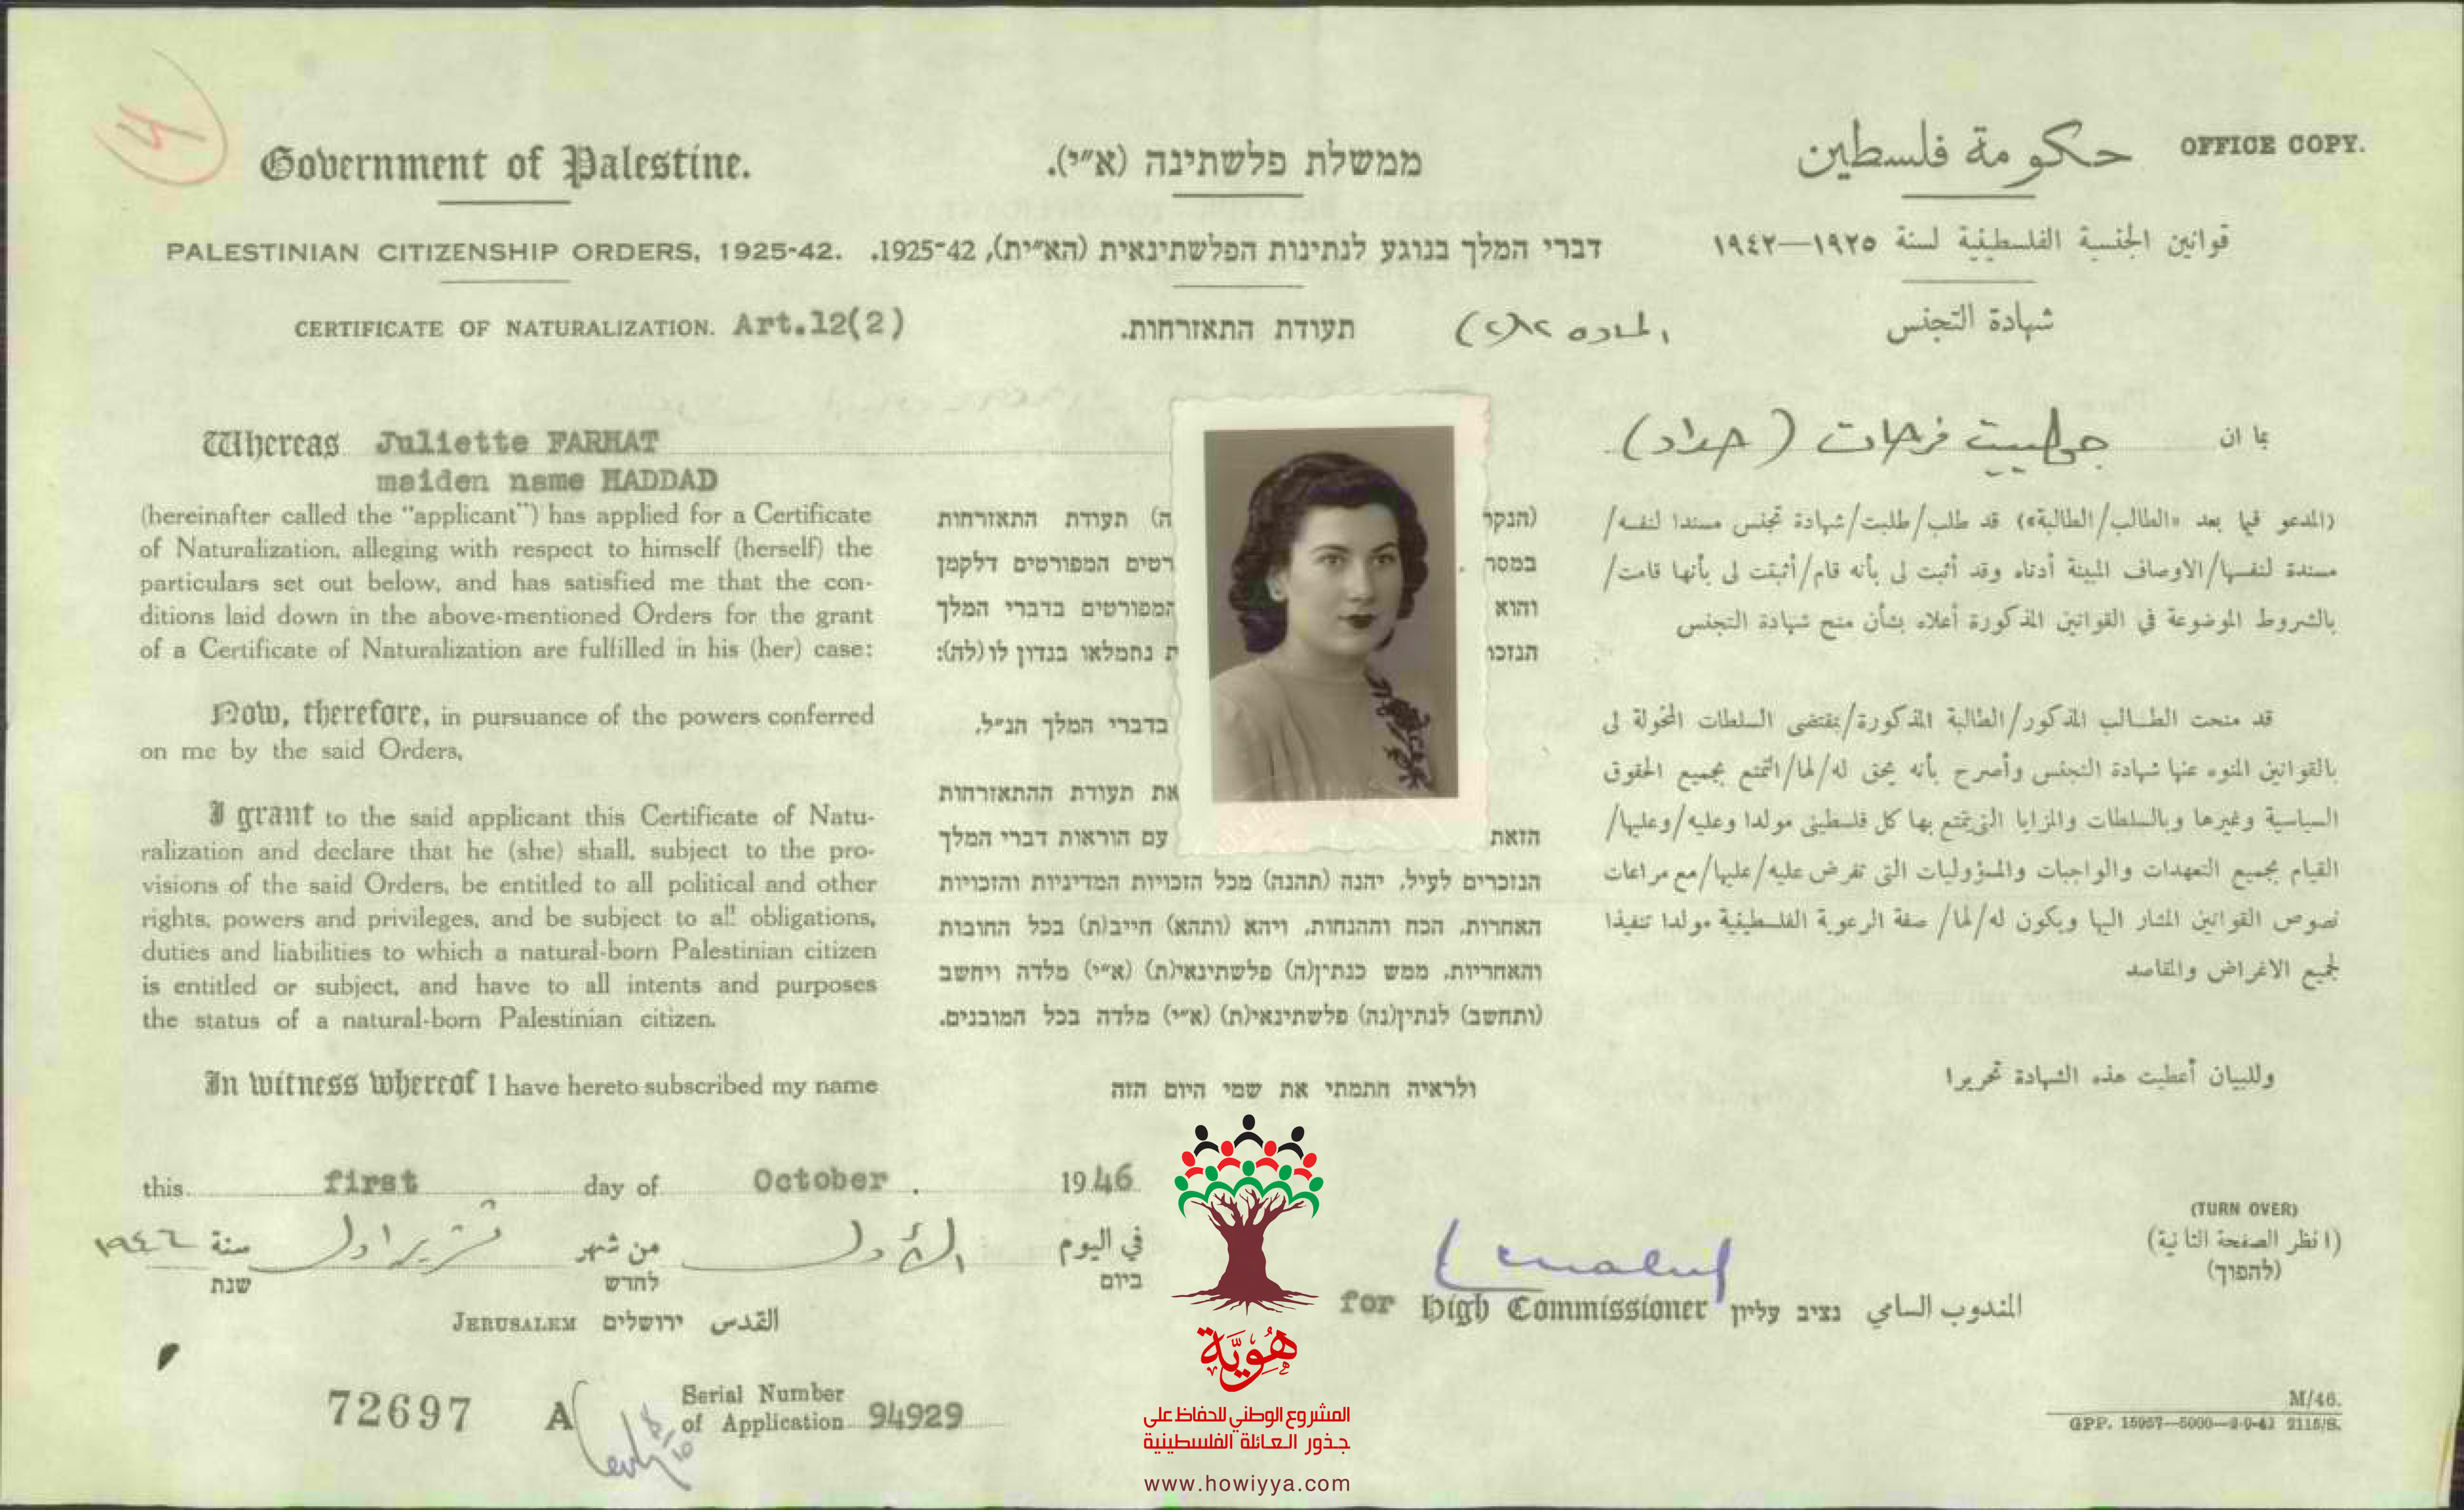 Government of Palestine.
ממשלת פלשתינה (א״י).
حكومة فلسطين
OFFICE COPY.
PALESTINIAN CITIZENSHIP ORDERS, 1925-42.
דברי המלך בנוגע לנתינות הפלשתינאית (הא״ית), 1925-42.
قوانين الجنسية الفلسطينية لسنة ١٩٢٥—١٩٤٢
CERTIFICATE OF NATURALIZATION. Art.12(2)
תעודת התאזרחות.
المادة ١٢(٢)
شهادة التجنس
Whereas Juliette FARHAT
maiden name HADDAD
(hereinafter called the "applicant") has applied for a Certificate
of Naturalization, alleging with respect to himself (herself) the
particulars set out below, and has satisfied me that the con-
ditions laid down in the above-mentioned Orders for the grant
of a Certificate of Naturalization are fulfilled in his (her) case:
Now, therefore, in pursuance of the powers conferred
on me by the said Orders,
I grant to the said applicant this Certificate of Natu-
ralization and declare that he (she) shall, subject to the pro-
visions of the said Orders, be entitled to all political and other
rights, powers and privileges, and be subject to all obligations,
duties and liabilities to which a natural-born Palestinian citizen
is entitled or subject, and have to all intents and purposes
the status of a natural-born Palestinian citizen.
In witness whereof I have hereto subscribed my name
(הנקר ה) תעודת התאזרחות
במסר רטים המפורטים דלקמן
והוא המפורטים בדברי המלך
הנזכו ת נתמלאו בנדון לו (לה):
בדברי המלך הנ״ל,
את תעודת ההתאזרחות
הזאת עם הוראות דברי המלך
הנזכרים לעיל, יהנה (תהנה) מכל הזכויות המדיניות והזכויות
האחרות, הכח וההנחות, ויהא (ותהא) חייב(ת) בכל החובות
והאחריות, ממש כנתין(ה) פלשתינאי(ת) (א״י) מלדה ויחשב
(ותחשב) לנתין(נה) פלשתינאי(ת) (א״י) מלדה בכל המובנים.
ולראיה חתמתי את שמי היום הזה
بما ان جولييت فرحات (حداد)
(المدعو فيما بعد «الطالب/الطالبة») قد طلب/طلبت/شهادة تجنس مسندا لنفسه/
مسندة لنفسها/الاوصاف المبينة أدناه وقد أثبت لى بأنه قام/أثبتت لى بأنها قامت/
بالشروط الموضوعة في القوانين المذكورة أعلاه بشأن منح شهادة التجنس
قد منحت الطالب المذكور/الطالبة المذكورة/بمقتضى السلطات المخولة لى
بالقوانين المنوه عنها شهادة التجنس وأصرح بأنه يحق له/لها/التمتع بجميع الحقوق
السياسية وغيرها وبالسلطات والمزايا التى يتمتع بها كل فلسطينى مولدا وعليه/وعليها/
القيام بجميع التعهدات والواجبات والمسؤوليات التى تفرض عليه/عليها/مع مراعات
نصوص القوانين المشار اليها ويكون له/لها/ صفة الرعوية الفلسطينية مولدا تنفيذا
لجميع الاغراض والمقاصد
وللبيان أعطيت هذه الشهادة تحريرا
this first day of October 1946
في اليوم الأول من شهر تشرين اول سنة ١٩٤٦
ביום לחדש שנת
JERUSALEM ירושלים القدس
for High Commissioner נציב עליון المندوب السامي
(TURN OVER)
(انظر الصفحة الثانية)
(להפוך)
72697 A
Serial Number
of Application 94929
M/46.
GPP. 15957—5000—2-9-42 2115/S.
هُوِيَّة
المشروع الوطني للحفاظ على
جذور العائلة الفلسطينية
www.howiyya.com